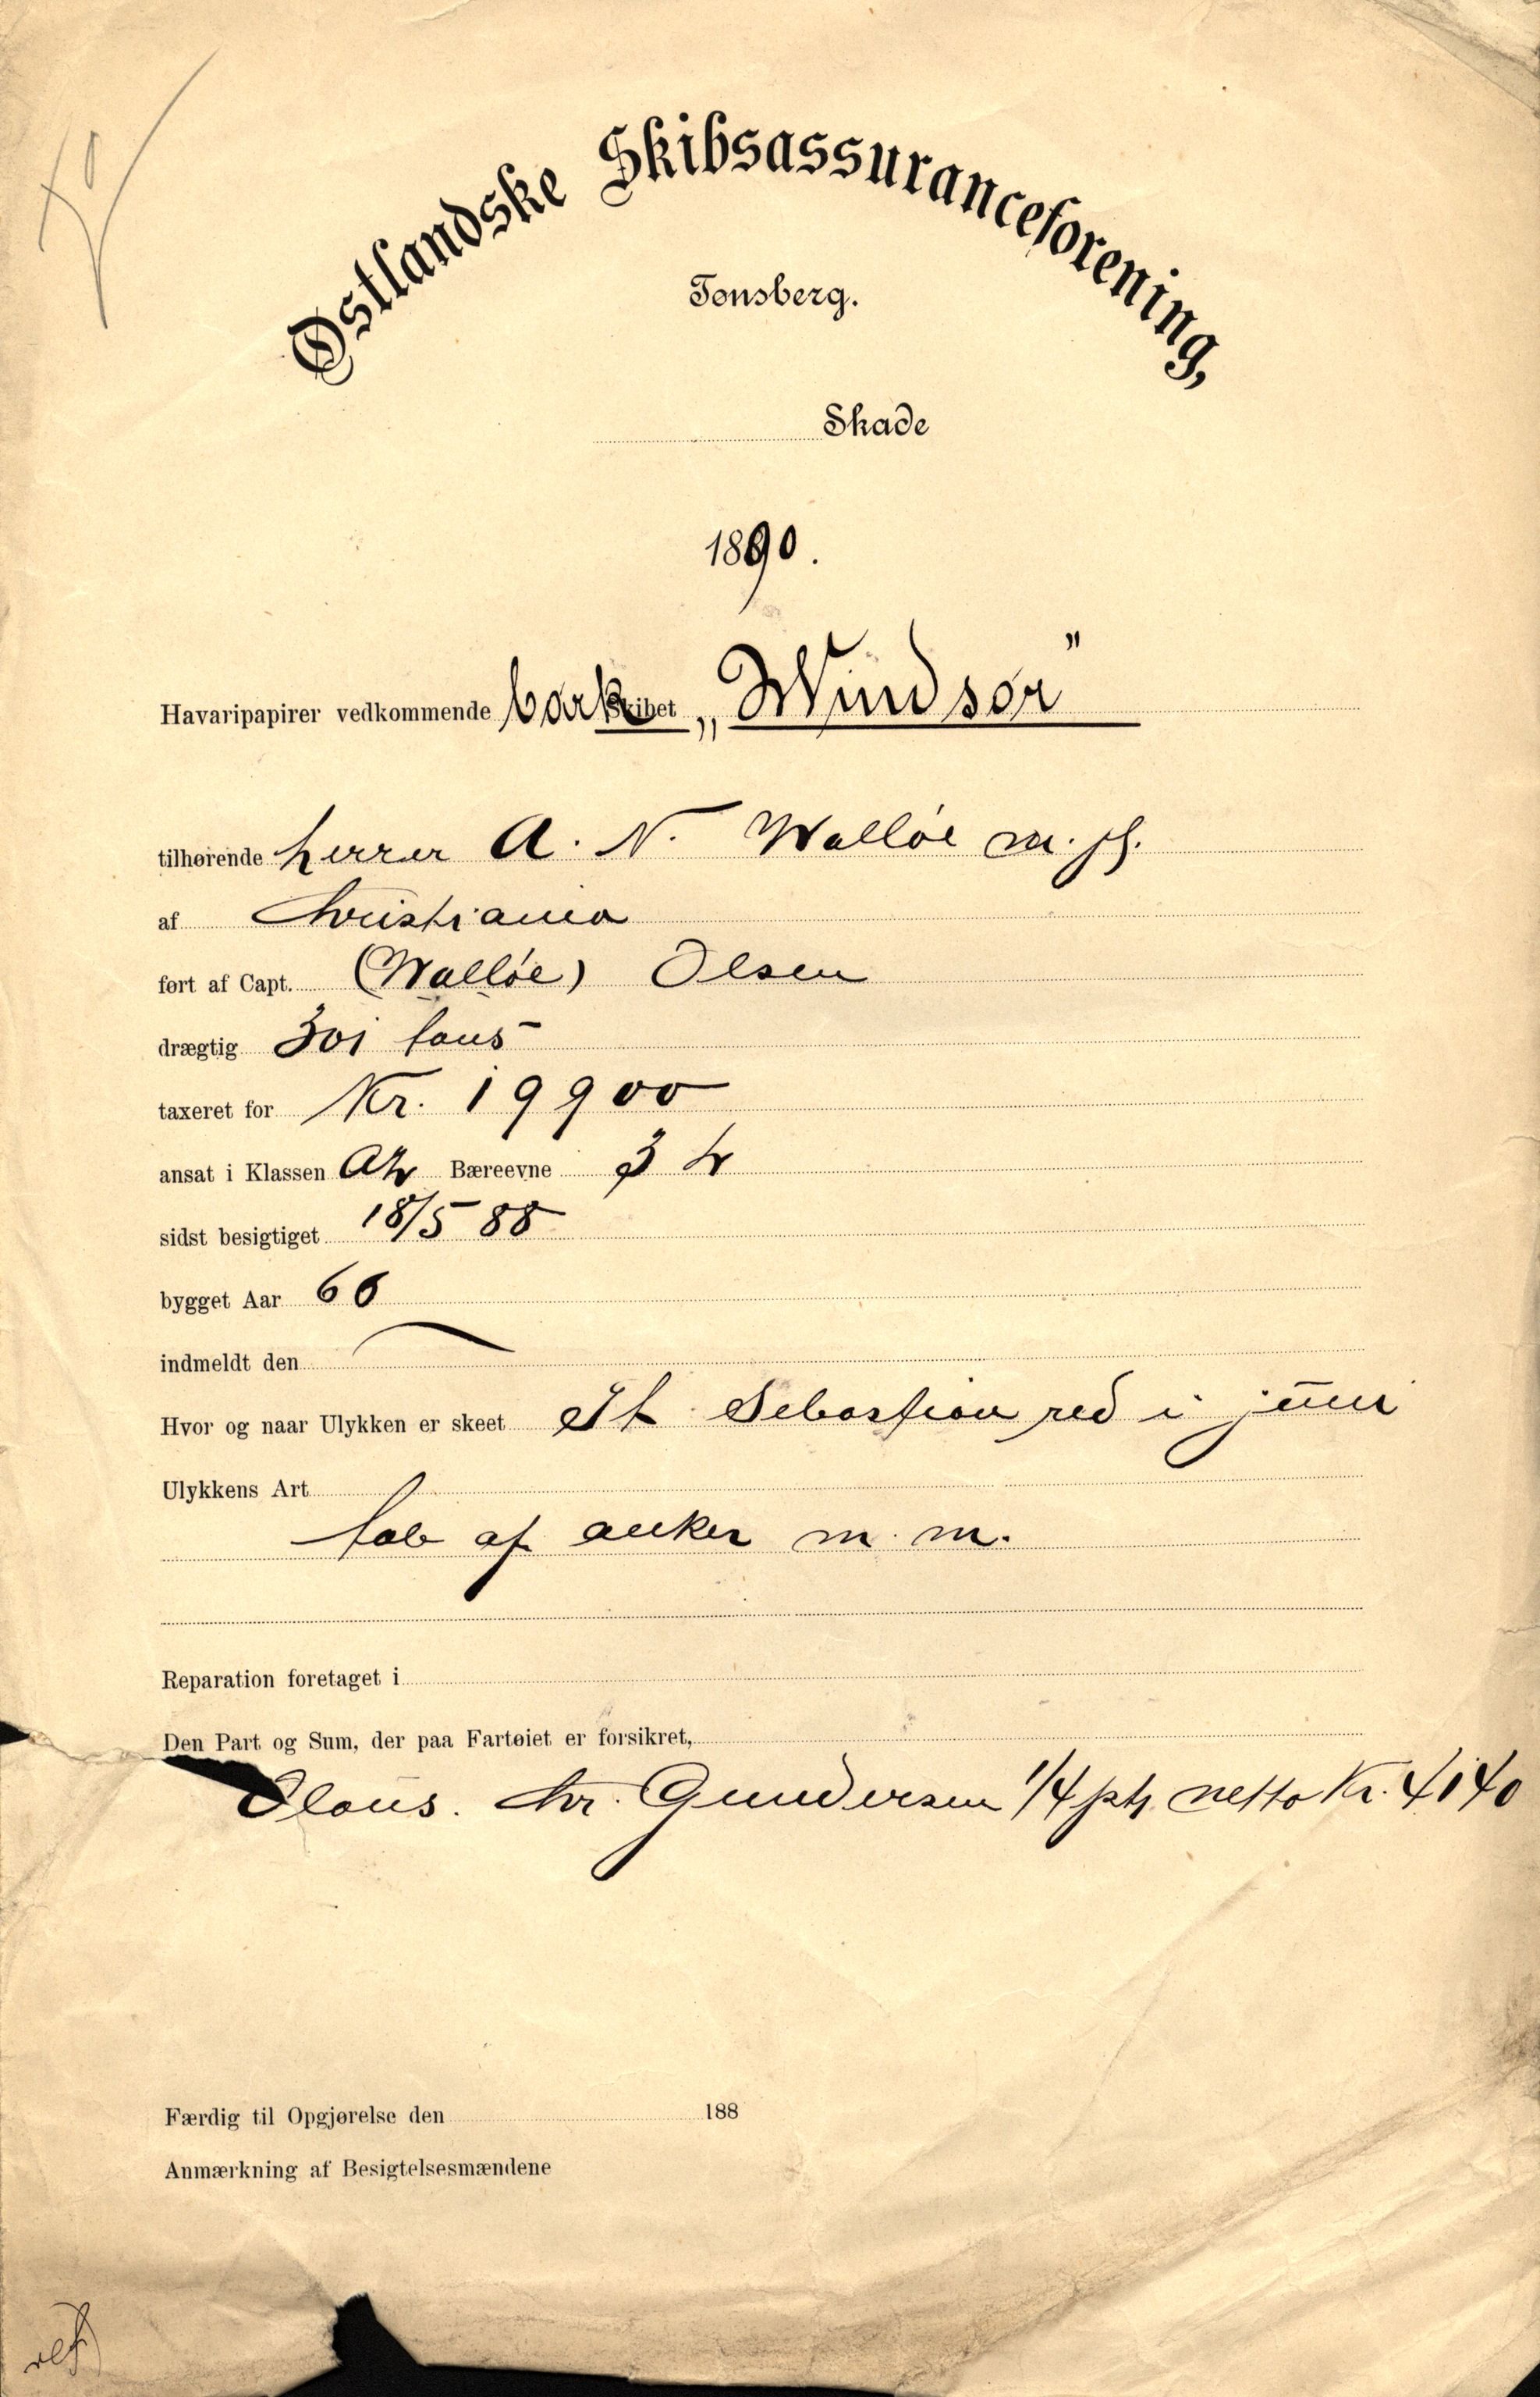 Østlandske Skibsassuranceforening,
Tønsberg.
Skade
1890.
Havaripapirer vedkommende bark Skibet „Windsor"
tilhørende herrer A. N. Walløe m. fl.
af Christiania
ført af Capt. (Walløe) Olsen
drægtig 301 tons
taxeret for Kr. 19900
ansat i Klassen A2 Bæreevne
sidst besigtiget 18/5 88
bygget Aar 66
indmeldt den
Hvor og naar Ulykken er skeet St Sebastian red i juni
Ulykkens Art
tab af anker m. m.
Reparation foretaget i
Den Part og Sum, der paa Fartøiet er forsikret,
Olaus. Chr. Gundersen 1/4 pt netto Kr. 4140
Færdig til Opgjørelse den 188
Anmærkning af Besigtelsesmændene